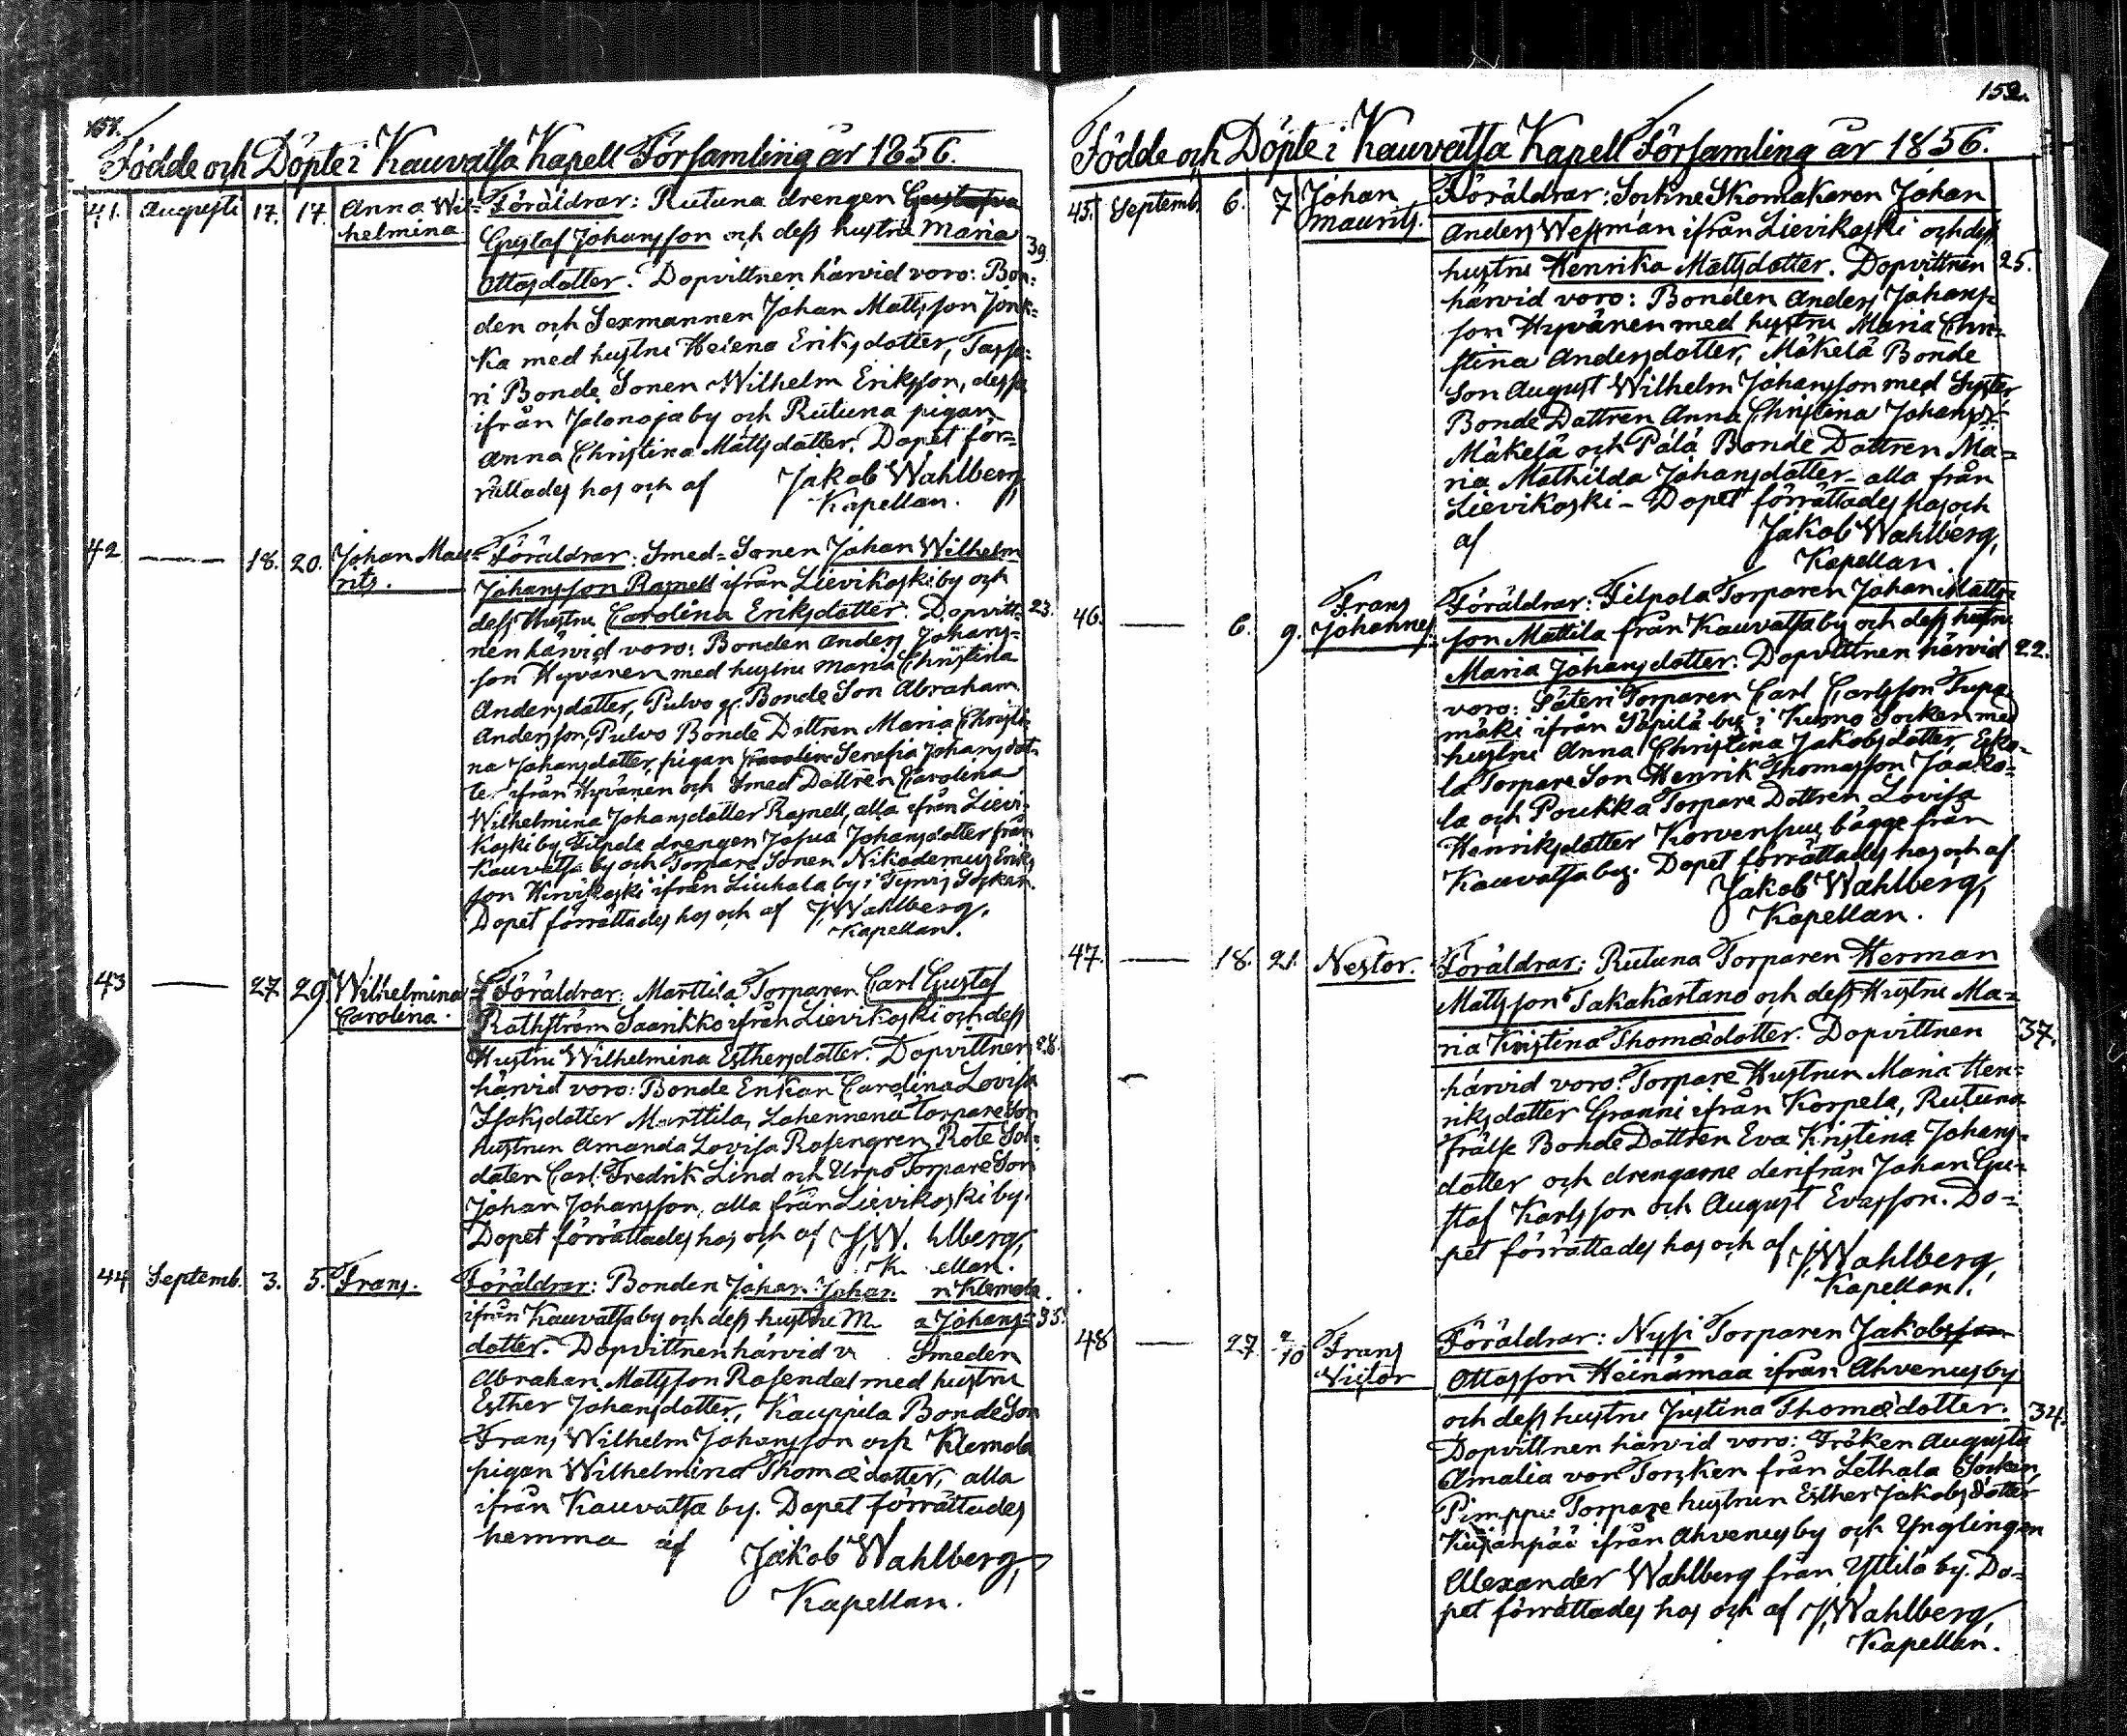 151.
Födde och Döpte i Kauvatsa Kapell Församling år 1856.
41. Augusti 17. 17. Anna Wil= Föräldrar: Rutuna drengen Gustafva
helmina Gustaf Johansson och dess hustru Maria 39.
Ottosdotter. Dopvittnen härvid voro: Bon=
den och Sexmannen Johan Mattsson Jönk=
ka med hustru Helena Eriksdotter,
ri Bonde Sonen Wilhelm Eriksson, dessa
ifrån Jalonoja by och Rutuna pigan
Anna Christina Mattsdotter. Dopet för=
rättades hos och af Jakob Wahlberg,
Kapellan.
42 — 18. 20. Johan Mau= Föräldrar: Smed=Sonen Johan Wilhelm
rits. Johansson Ramell ifrån Lievikoski by och
dess Hustru Carolina Eriksdotter. Dopvitt= 23.
nen härvid voro: Bonden Anders Johans=
son Hyvönen med hustru Maria Christina
Andersdotter, Pulvo gf. Bonde Son Abraham
Andersson, Pulvo Bonde Dottren Maria Christi=
na Johansdotter, pigan Carolin Serafia Johansdot=
ter ifrån Hyvönen och Smed Dottren Carolina
Wilhelmina Johansdotter Ramell, alla ifrån Lievi=
koski by, Filpola drengen Josua Johansdotter från
Kauvatsa by och Torpare Sonen Nikodemus Eriks
son Hirvikoski ifrån Liuhala by i Tyrvis Socken.
Dopet förrättades hos och af J. Wahlberg,
Kapellan.
43 — 27 29 Wilhelmina Föräldrar: Marttila Torparen Carl Gustaf
Carolina. Rothström Saarikko ifrån Lievikoski och dess
Hustru Wilhelmina Esthersdotter. Dopvittnen 28.
härvid voro: Bonde Enkan Carolina Lovisa
Isaksdotter Marttila, Lahennena Torpare Son
hustrun Amanda Lovisa Rosengren, Rote Sol=
daten Carl Fredrik Lind och Urpo Torpare Son
Johan Johansson, alla från Lievikoski by.
Dopet förrättades hos och af J. W. hlberg,
K. ellan.
44 Septemb. 3. 5. Frans. Föräldrar: Bonden Johan Johan n Klemola
ifrån Kauvatsa by och dess hustru M. a Johans= 35.
dotter. Dopvittnen härvid v Smeden
Abraham Mattsson Rosendal med hustru
Esther Johansdotter, Kauppila Bonde Son
Frans Wilhelm Johansson och Klemola
pigan Wilhelmina Thomædotter, alla
ifrån Kauvatsa by. Dopet förrättades
hemma af Jakob Wahlberg,
Kapellan.
152.
Födde och Döpte i Kauvatsa Kapell Församling år 1856.
45. Septemb. 6. 7 Johan Föräldrar: Sockne Skomakaren Johan
Maurits. Anders Wessman ifrån Lievikoski och dess
hustru Henrika Mattsdotter. Dopvittnen 25.
härvid voro: Bonden Anders Johans=
son Hyvönen med hustru Maria Chri=
stina Andersdotter, Mäkelä Bonde
Son August Wilhelm Johansson med Syster
Bonde Dottren Anna Christina Johansd:r
Mäkelä och Pälä Bonde Dottren Ma=
ria Mathilda Johansdotter - alla från
Lievikoski - Dopet förrättades hos och
af Jakob Wahlberg,
Kapellan.
46. — 6. 9. Frans Föräldrar: Filpola Torparen Johan Matts=
Johannes. son Mattila från Kauvatsa by och dess hustru
Maria Johansdotter. Dopvittnen härvid 22.
voro: Säteri Torparen Carl Carlsson Tupa=
mäki ifrån Säpilä by i Kumo Socken med
hustru Anna Christina Jakobsdotter, Esko=
la Torpare Son Henrik Thomasson Jaako=
la och Poukka Torpare Dottren Lovisa
Henriksdotter Korvensuu, bägge från
Kauvatsa by. Dopet förrättades hos och af
Jakob Wahlberg,
Kapellan.
47. — 18. 21. Nestor. Föräldrar: Rutuna Torparen Herman
Mattsson Takakartano och dess Hustru Ma=
ria Kristina Thomædotter. Dopvittnen 37.
härvid voro: Torpare Hustrun Maria Hen=
riksdotter Granni ifrån Korpela, Rutuna
Frälse Bonde Dottren Eva Kristina Johans=
dotter och drengarne derifrån Johan Gu=
staf Karlsson och August Evasson. Do=
pet förrättades hos och af J. Wahlberg,
Kapellan.
48 — 27 2/10 Frans Föräldrar: Nyssi Torparen Jakobsson
Victor Ottosson Heinämaa ifrån Ahvenus by
och dess hustru Justina Thomædotter. 34.
Dopvittnen härvid voro: Fröken Augusta
Amalia von Torcken från Lethala Socken,
Pimppu Torpare hustrun Esther Jakobsdotter
Kujanpää ifrån Ahvenus by och Ynglingen
Alexander Wahlberg från Yttilä by. Do=
pet förrättades hos och af J. Wahlberg,
Kapellan.